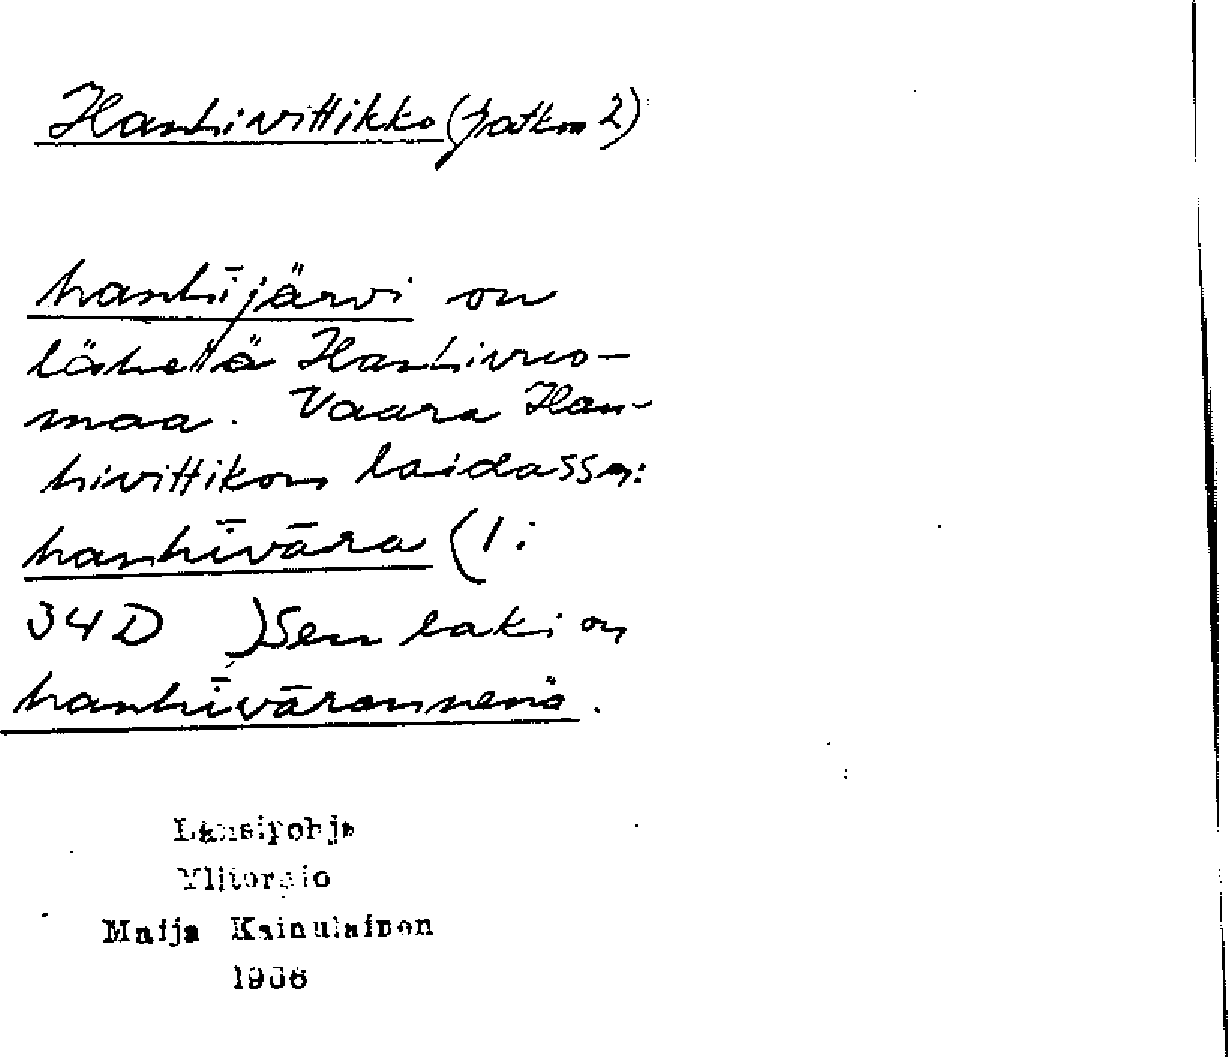 Hanhivittikko (jatkoa 2)
hanhījärvi on
lähellä Hanhivuo-
maa. Vaara Han-
hivittikon laidassa:
hanhīvāra (1:
34D )Sen laki on
hanhīvāran nenä.
Länsipohja
Ylitornio
Maija Kainulainen
1966